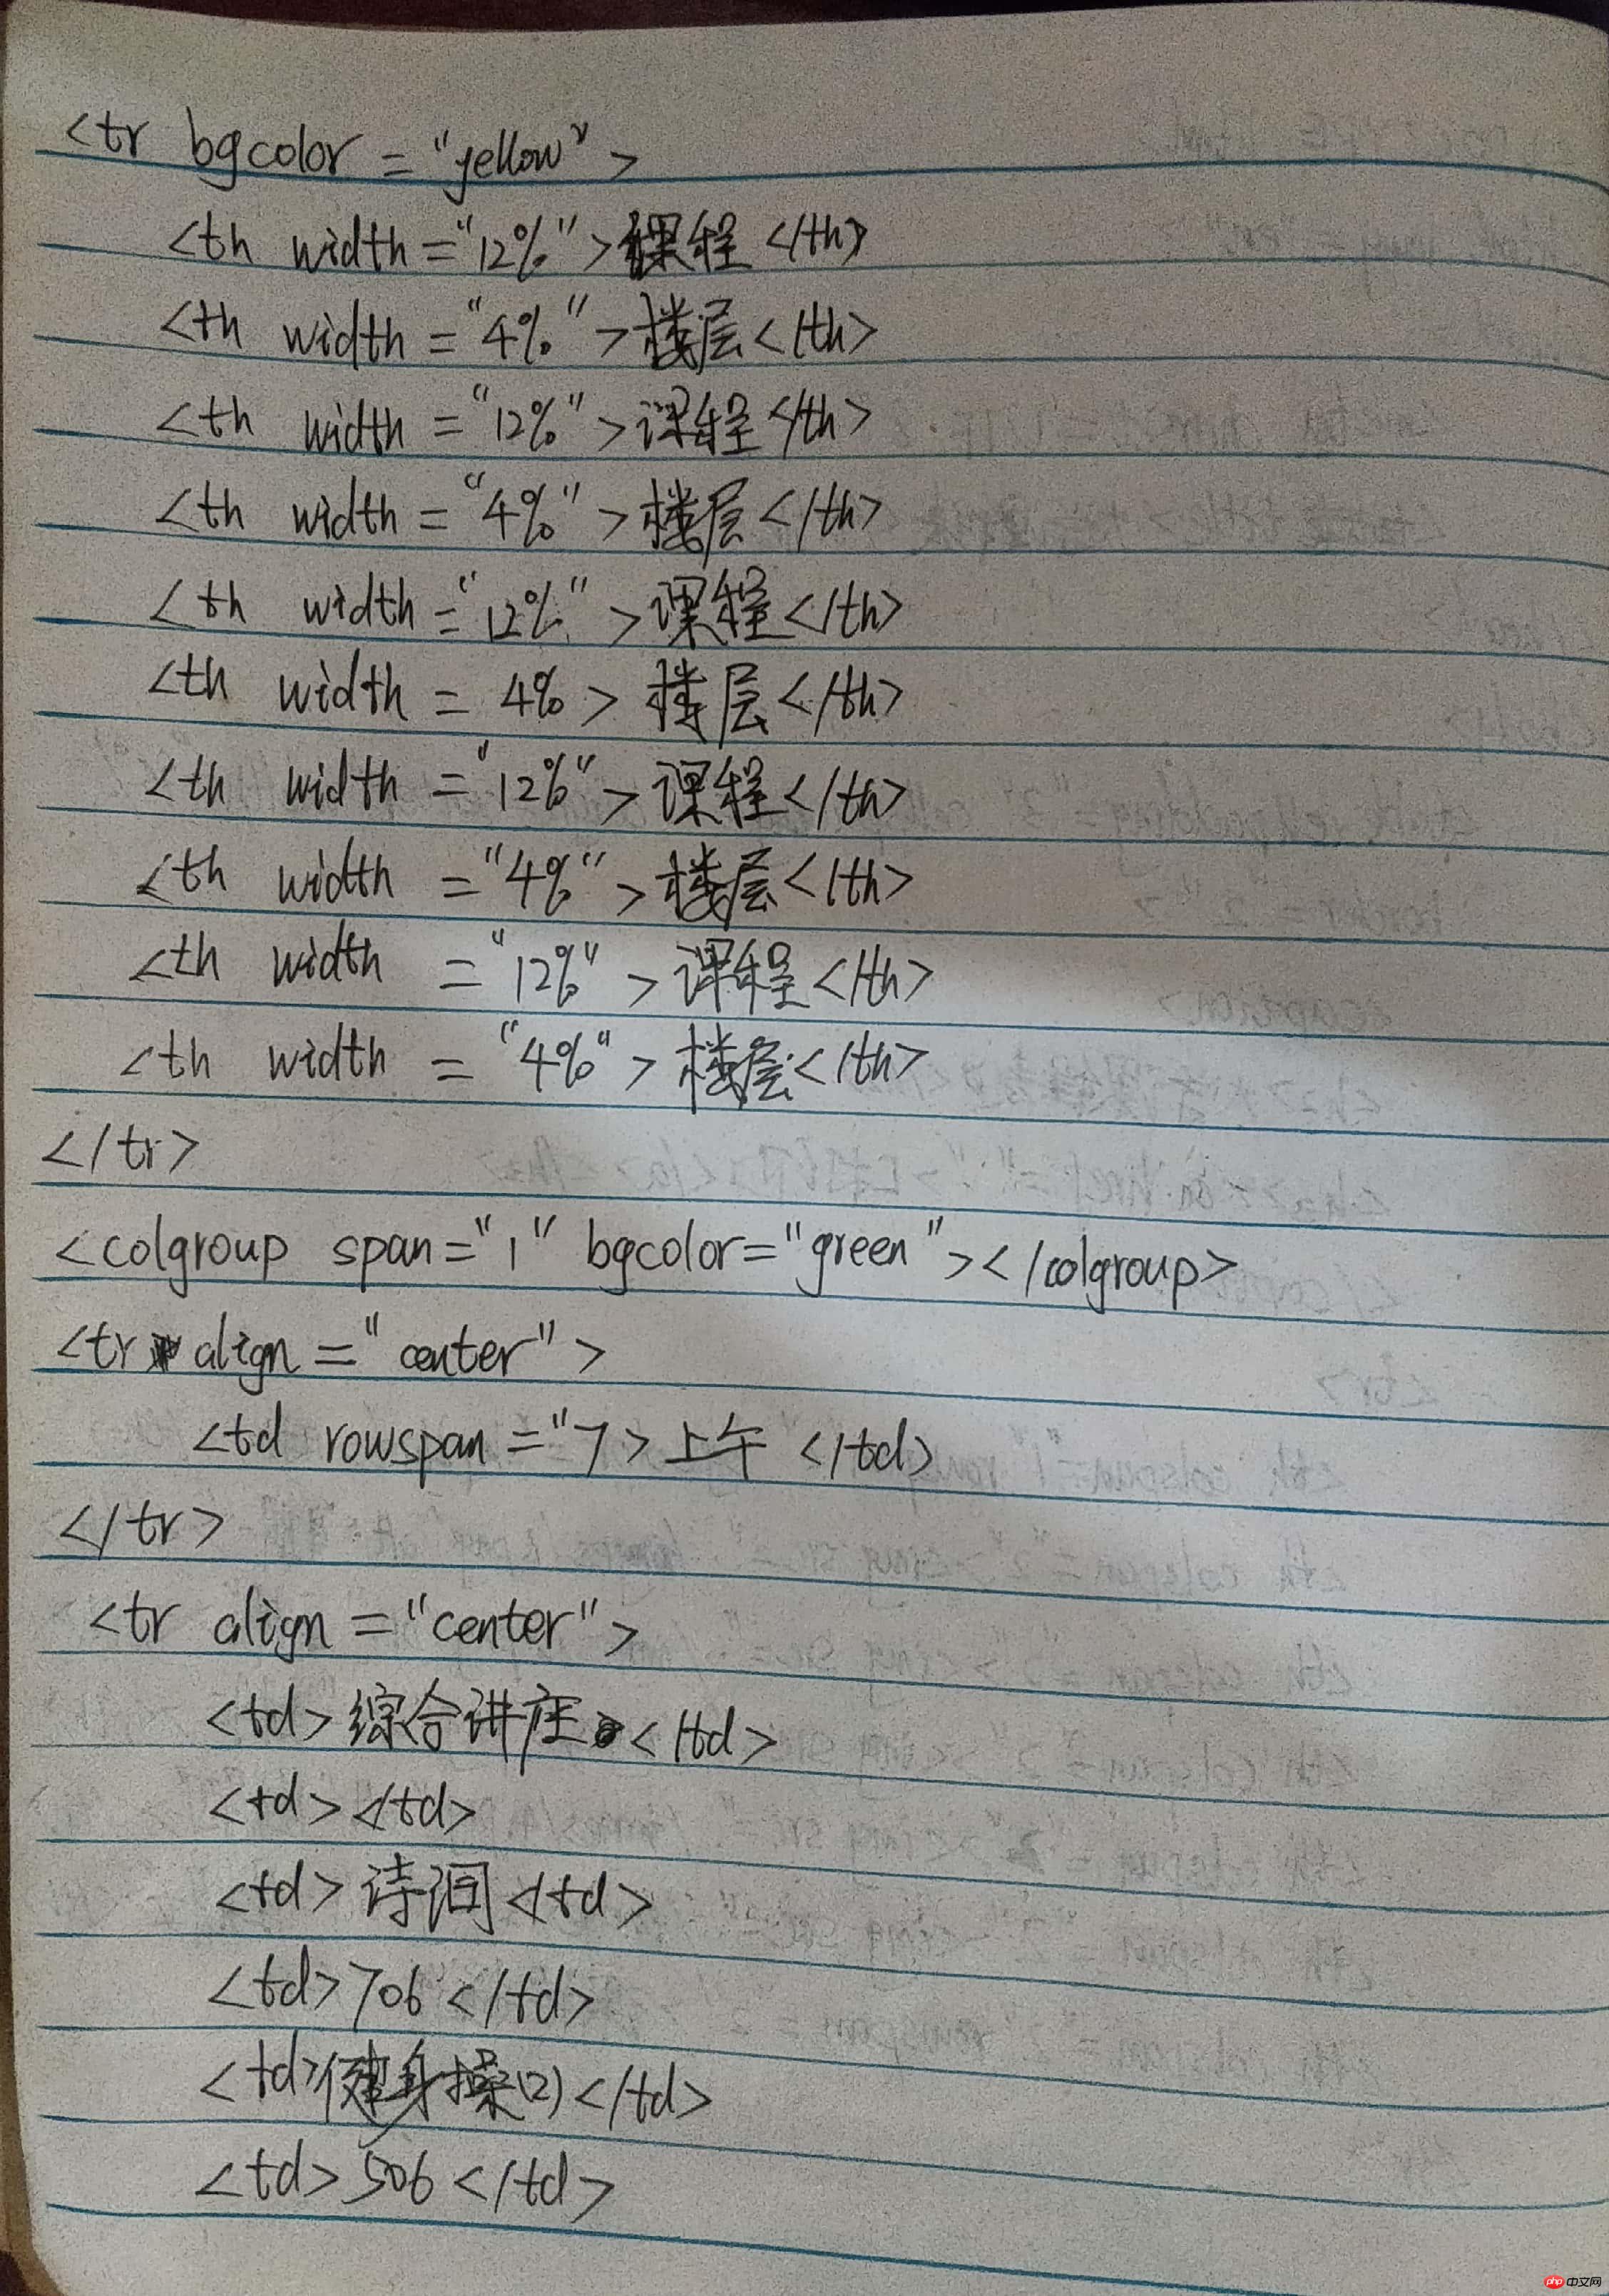 <tr bgcolor = "yellow">
<th width = "12%" > 课程 </th>
<th width = "4%" > 楼层 </th>
<th width = "12%" > 课程 </th>
<th width = "4%" > 楼层 </th>
<th width = "12%" > 课程 </th>
<th width = 4% > 楼层 </th>
<th width = "12%" > 课程 </th>
<th width = "4%" > 楼层 </th>
<th width = "12%" > 课程 </th>
<th width = "4%" > 楼层 </th>
</tr>
<colgroup span="1" bgcolor="green"></colgroup>
<tr align = "center">
<td rowspan = "7 > 上午 </td>
</tr>
<tr align = "center">
<td> 综合讲座 </td>
<td></td>
<td> 诗词 </td>
<td> 706 </td>
<td>健身操(2)</td>
<td> 506 </td>
php 中文网